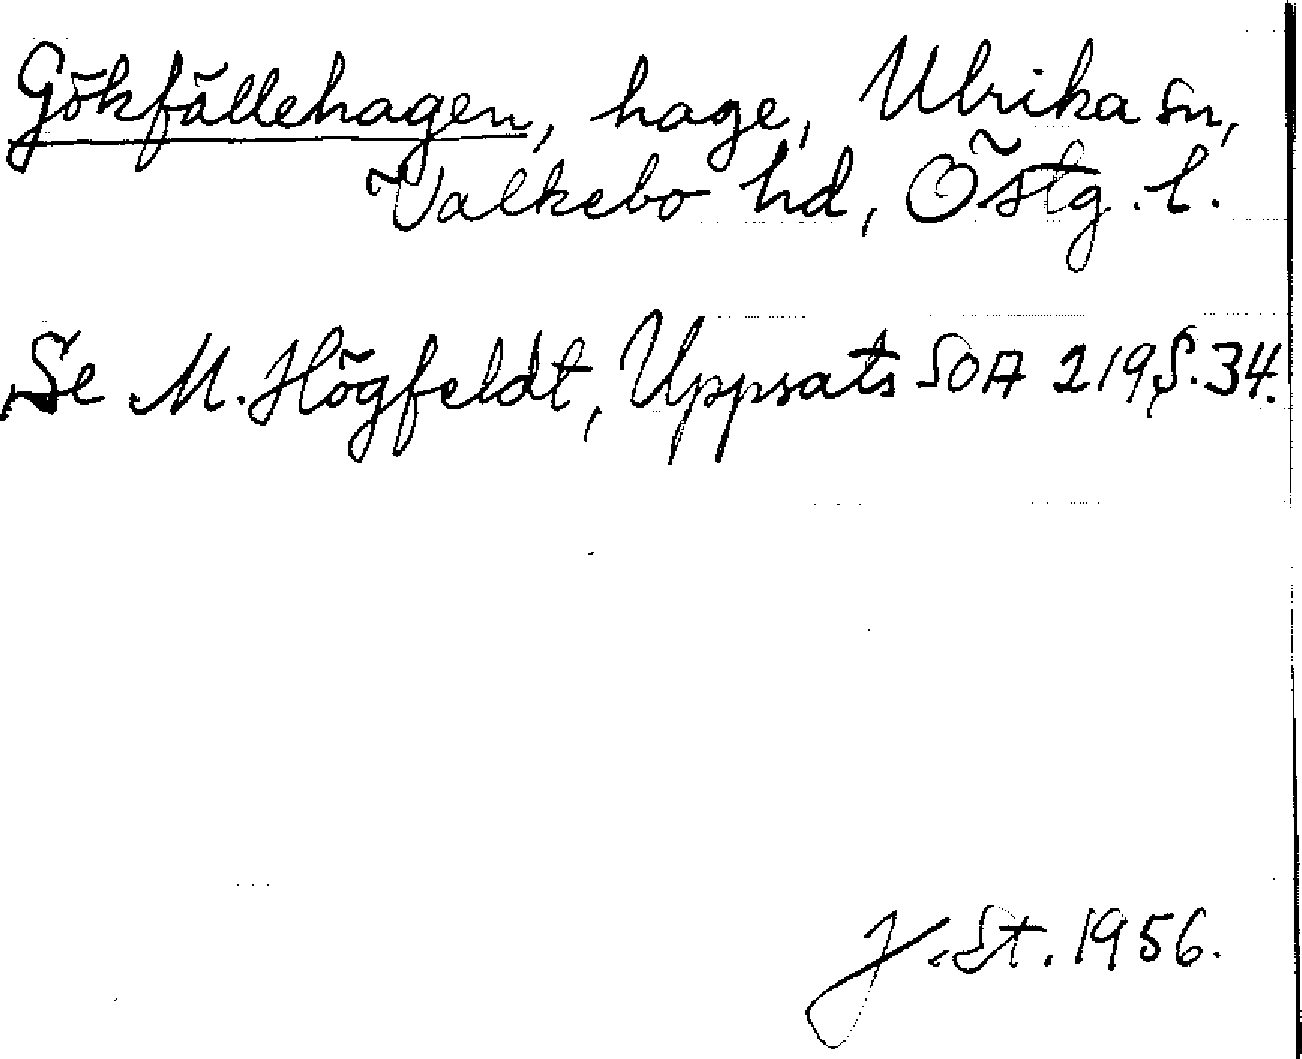 Gökfällehagen, hage, Ulrika sn,
Valkebo hd, Östg. l.
Se M. Högfeldt, Uppsats SOA 219, S. 34.
J. St. 1956.